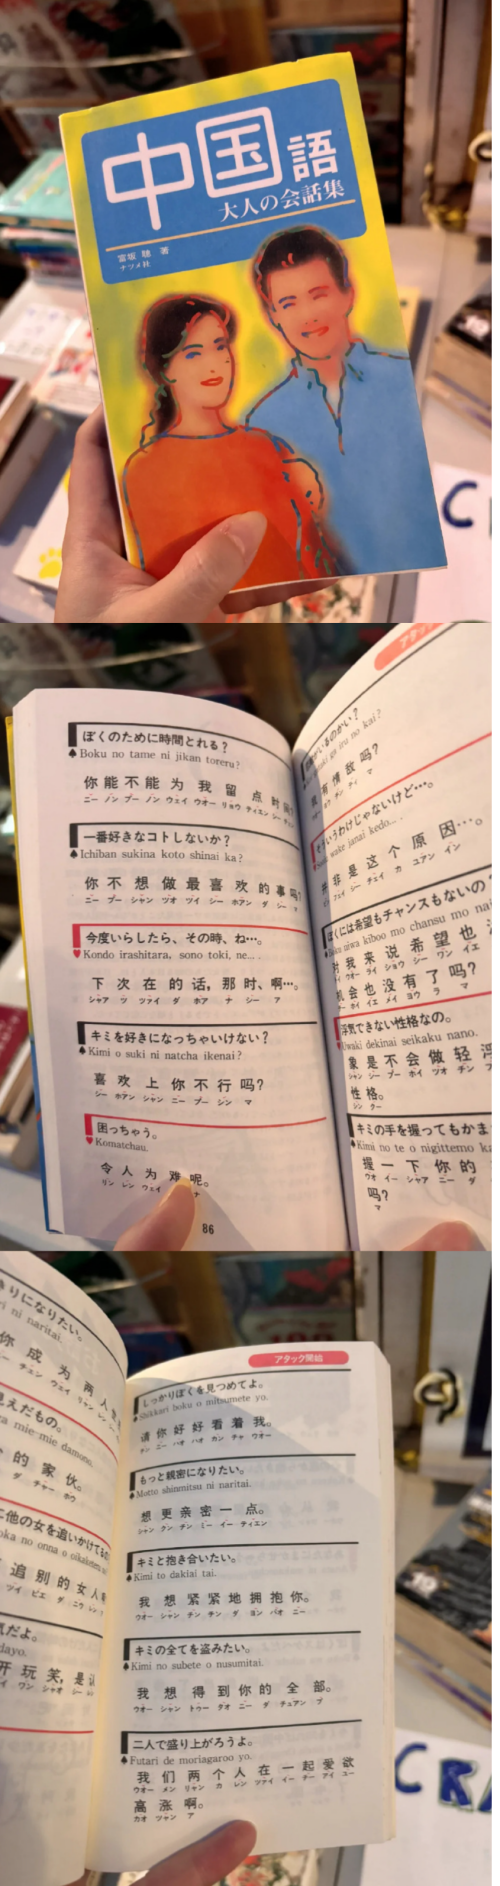 中国語
大人の会話集
富坂 聰 著
ナツメ社
ぼくのために時間とれる?
Boku no tame ni jikan toreru?
你能不能为我留点时间
ニー ノン ブー ノン ウェイ ウオー リョウ ティエン シー
一番好きなコトしないか?
Ichiban sukina koto shinai ka?
你不想做最喜欢的事吗?
ニー ブー シャン ツオ ツイ シー ホアン ダ シー マ
今度いらしたら、その時、ね…。
Kondo irashitara, sono toki, ne... .
下次在的话,那时、啊…。
シャア ツ ツァイ ダ ホア ナ シー ア
キミを好きになっちゃいけない?
Kimi o suki ni natcha ikenai?
喜欢上你不行吗?
シー ホアン シャン ニー ブー シン マ
困っちゃう。
Komatchau.
令人为难呢。
リン レン ウェイ ナ
86
がいるのかい?
ga iru no kai?
有情敌吗?
チン ティ マ
いうわけじゃないけど…。
wake janai kedo... .
非是这个原因…。
フェイ シー チェイ カ ユアン イン
ぼくには希望もチャンスもないの
niwa kiboo mo chansu mo nai
对我来说希望也
ウオー ライ ショウ シー ワン イエ
机会也没有了吗?
ホイ イエ メイ ヨウ ラ マ
浮気できない性格なの。
Uwaki dekinai seikaku nano.
象是不会做轻浮
シャン シー ブー ホイ ツオ チン
性格。
シン クー
キミの手を握ってもかま
Kimi no te o nigittemo ka
握一下你的
ウオ イー シャア ニー ダ
吗?
マ
りになりたい。
ri ni naritai.
你成为两人
チェン ウェイ リャン レン
見えだもの。
mie-mie damono.
的家伙。
ダ チャー ホウ
に他の女を追いかけてる
oka no onna o oikaketeru
追别的女人
ツイ ビエ ダ ニウ レン
だよ。
dayo.
开玩笑,是认
ワン シャオ シー
アタック開始
しっかりぼくを見つめてよ。
Shikkari boku o mitsumete yo.
请你好好看着我。
チン ニー ハオ ハオ カン チャ ウオー
もっと親密になりたい。
Motto shinmitsu ni naritai.
想更亲密一点。
シャン クン チン ミー イー ティエン
キミと抱き合いたい。
Kimi to dakiai tai.
我想紧紧地拥抱你。
ウオー シャン チン チン ダ ヨン バオ ニー
キミの全てを盗みたい。
Kimi no subete o nusumitai.
我想得到你的全部。
ウオー シャン トゥー タオ ニー ダ チュアン ブ
二人で盛り上がろうよ。
Futari de moriagaroo yo.
我们两个人在一起爱欲
ウオー メン リャン カ レン ツァイ イー チー アイ ユー
高涨啊。
カオ ツャン ア